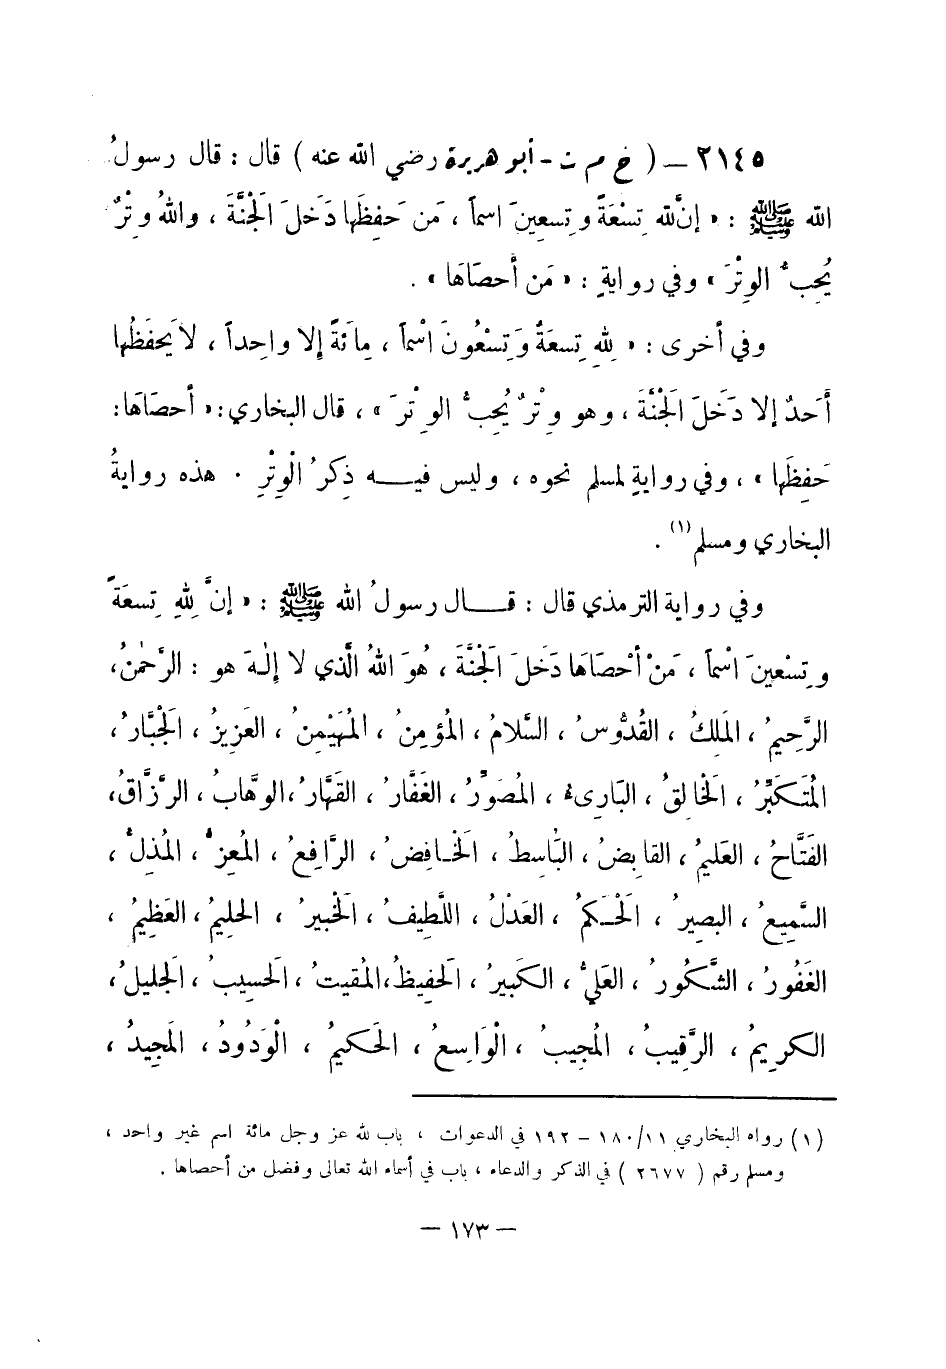 ٢١٤٥ – ( خ م ت - أبو هريرة رضي الله عنه ) قال : قال رسولُ
الله ﷺ : « إنَّ لله تِسْعَةً وتِسعِينَ اسماً ، مَن حَفِظَها دَخَلَ الجنَّةَ ، واللهُ وِتْرٌ
يُحِبُّ الوِتْرَ » وفي روايةٍ : « مَن أَحصَاهَا » .
وفي أخرى : « لِلهِ تِسعَةٌ وَتِسْعُونَ اسْماً ، مِائَةً إلا واحِداً ، لاَ يَحفَظُها
أَحَدٌ إلا دَخَلَ الَجْنَّةَ ، وهو وِتْرٌ يُحِبُّ الوِتْرَ » ، قال البخاري : « أحصَاهَا :
حَفِظَها » ، وفي روايةٍ لمسلم نحوه ، وليس فيــه ذِكرُ الْوِتْرِ . هذه روايةُ
البخاري ومسلم (١) .
وفي رواية الترمذي قال : قــال رسولُ الله ﷺ : « إنَّ لِلهِ تِسعَةً
وتِسْعينَ اسْماً ، مَنْ أَحْصَاهَا دَخَلَ الَجْنَّةَ ، هُوَ اللهُ الَّذي لا إلٰهَ هو : الرَّحمٰنُ ،
الرَّحِيمُ ، المَلِكُ ، القُدُّوسُ ، السَّلامُ ، المُؤمِنُ ، المُهَيْمِنُ ، العَزِيزُ ، الَجْبَّارُ ،
المُتَكَبِّرُ ، الَخْالِقُ ، البَارِىءُ ، المُصَوِّرُ ، الغَفَّارُ ، القَهَّارُ ، الوهَّابُ ، الرَّزَّاقُ ،
الفَتَّاحُ ، العَليمُ ، القابِضُ ، البَاسِطُ ، الَخْافِضُ ، الرَّافِعُ ، المُعِزُّ ، المُذِلُّ ،
السَّمِيعُ ، البَصِيرُ ، الَحْكَمُ ، العَدْلُ ، اللَّطِيفُ ، الَخْبيرُ ، الحليمُ ، العَظِيمُ ،
الغَفُورُ ، الشَّكُورُ ، العَليُّ ، الكَبِيرُ ، الَحفِيظُ ، المُقيتُ ، الَحسيبُ ، الَجليلُ ،
الكرِيمُ ، الرَّقِيبُ ، المُجيبُ ، الْوَاسِعُ ، الَحكيمُ ، الْوَدُودُ ، المَجِيدُ ،
(١) رواه البخاري ١٨٠/١١ – ١٩٢ في الدعوات ، باب لله عز وجل مائة اسم غير واحد ،
ومسلم رقم ( ٢٦٧٧ ) في الذكر والدعاء ، باب في أسماء الله تعالى وفضل من أحصاها .
— ١٧٣ —